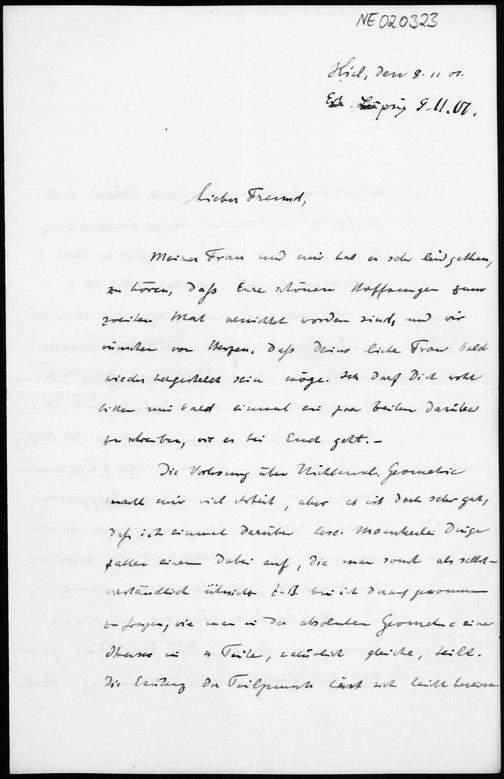 NE020323
Kiel, den 8.11.01.
Erh. Leipzig 9.11.01.
Lieber Freund,
Meiner Frau und mir hat es sehr leid gethan,
zu hören, daß Eure schönen Hoffnungen zum
zweiten Mal vernichtet worden sind, und wir
wünschen von Herzen, daß Deine liebe Frau bald
wieder hergestellt sein möge. Ich darf Dich wohl
bitten mir bald einmal ein paar Zeilen darüber
zu schreiben, wie es bei Euch geht. –
Die Vorlesung über Nichteukl. Geometrie
macht mir viel Arbeit, aber es ist doch sehr gut,
daß ich einmal darüber lese. Mancherlei Dinge
fallen einem dabei auf, die man sonst als selbst-
verständlich übersieht. Z.B. bin ich darauf gekommen
zu fragen, wie man in der absoluten Geometrie eine
Strecke in n Teile, natürlich gleiche, teilt.
Die Existenz der Teilpunkte lässt sich leicht beweisen